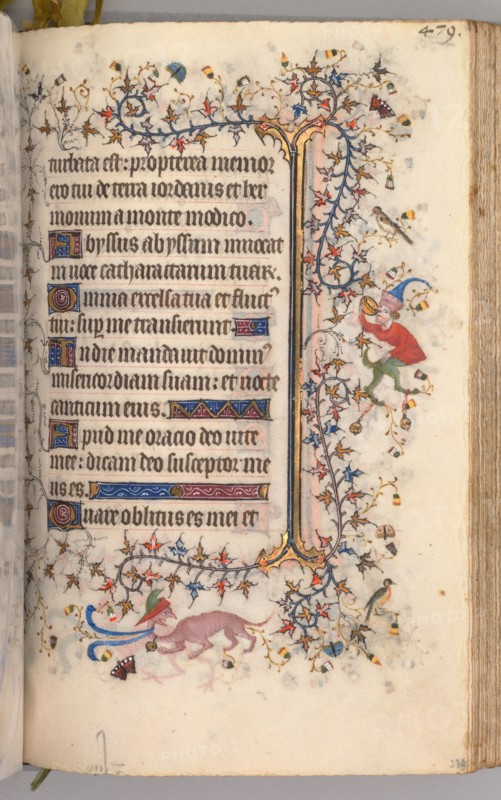 479.
turbata est: propterea memor
ero tui de terra iordanis et her
monium a monte modico.
Abyssus abyssum inuocat
in uoce catharactarum tuarum.
Omnia excelsa tua et fluct9
tui: sup me transierunt.
In die mandauit domin9
misericordiam suam: et nocte
canticum eius.
Apud me oracio deo uite
mee: dicam deo susceptor me
us es.
Quare oblitus es mei et